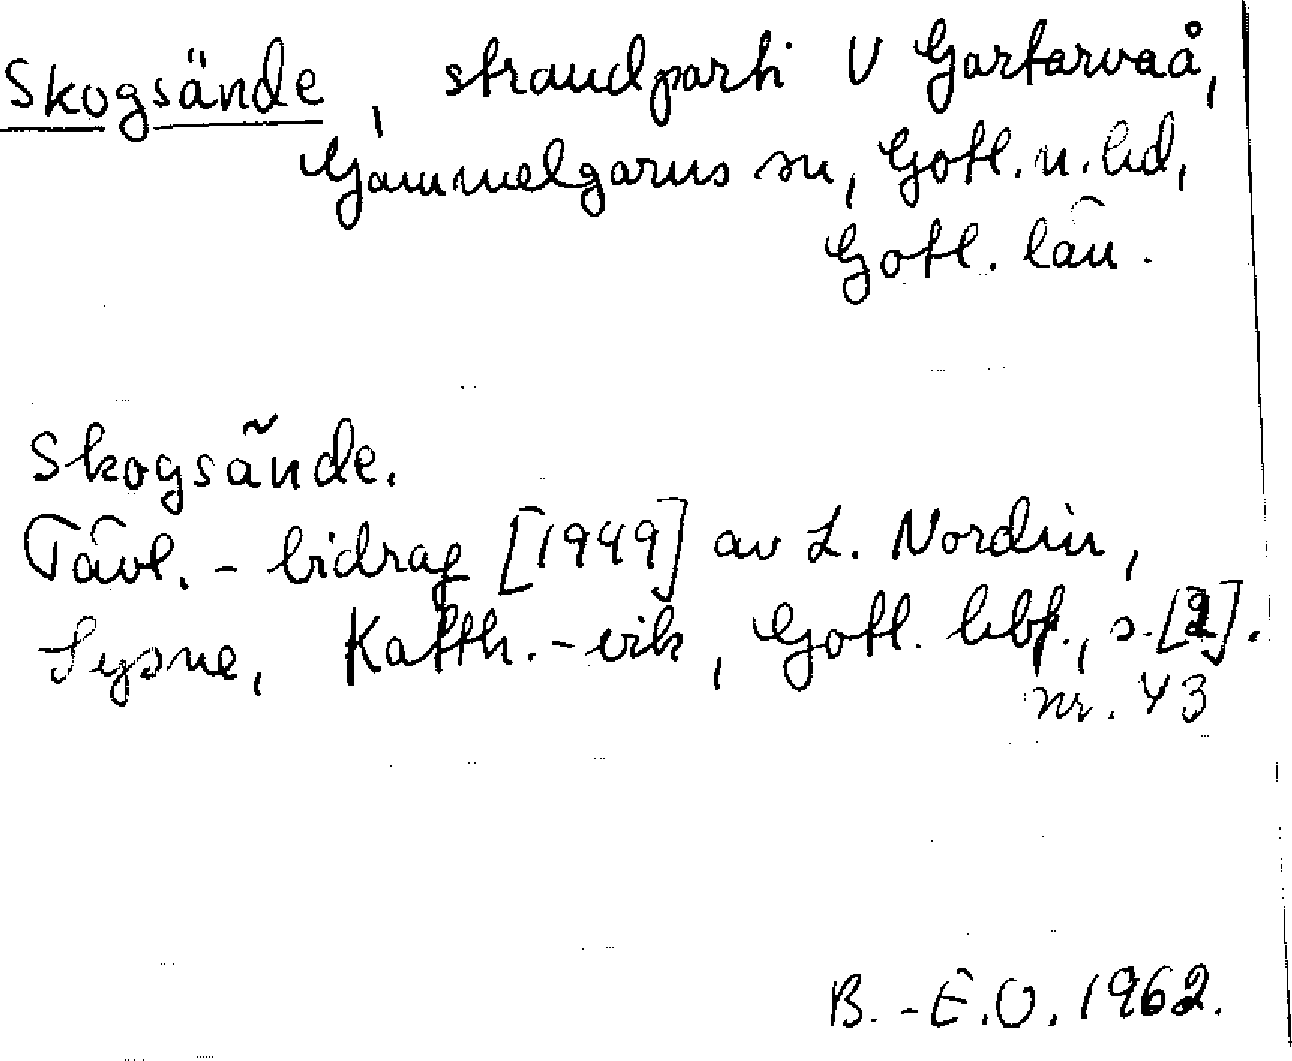 Skogsände, strandparti V Gartarvaå,
Gammelgarns sn, Gotl. n. hd,
Gotl. län.
Skogsände.
Tävl.-bidrag [1949] av L. Nordin,
Sysne, Katth.-vik, Gotl. hbf., s. [2].
nr. 43
B.-E.O. 1962.